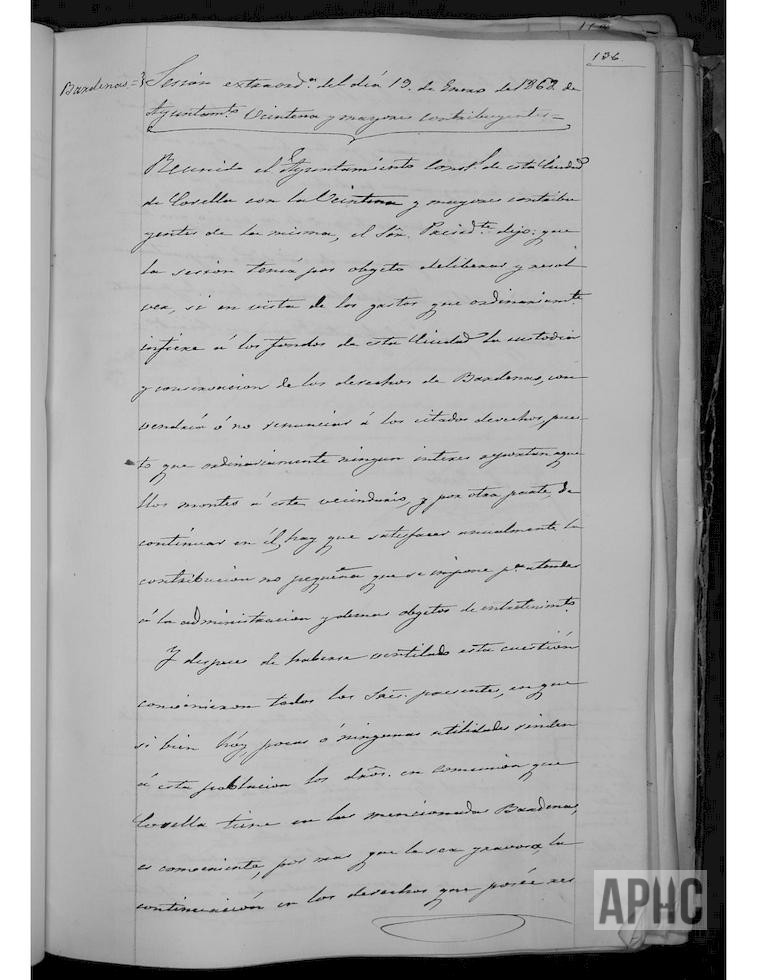 136
Bardenas = Sesion extraord.ª del día 19. de Enero de 1862. de
Ayuntam.to Veintena y mayores contribuyentes =
Reunido el Ayuntamiento Const.l de esta Ciudad
de Corella con la Veintena y mayores contribu
yentes de la misma, el Sõr. Presid.te dijo: que
la sesion tenía por objeto deliberar y resol
ver, si en vista de los gastos que ordinariam.te
infiere á los fondos de esta Ciudad la custodia
y conservacion de los derechos de Bardenas, con
vendría ó no renunciar á los citados derechos, pues
to que ordinariamente ningun interes reportan aque
llos montes á este vecindario, y por otra parte, de
continuar en él, hay que satisfacer anualmente la
contribucion no pequeña que se impone p.ª atender
á la administracion y demas objetos de entretenim.to
Y despues de haberse ventilado esta cuestión
convinieron todos los Sres. presentes, en que
si bien hóy, pocas ó ningunas utilidades rinden
á esta poblacion los dr̃os. en comunion que
Corella tiene en las mencionadas Bardenas,
es conveniente, por mas que la sea gravosa, la
continuación en los derechos que posée res
APHC